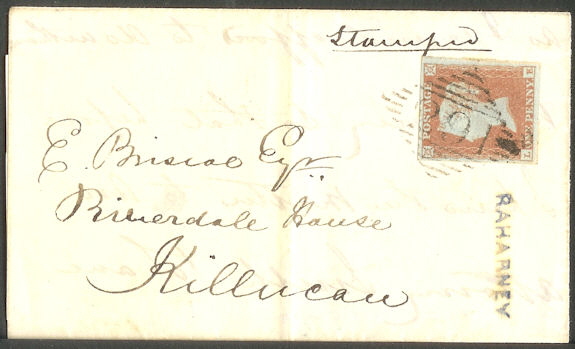 Stamped
POSTAGE
ONE PENNY
L E
E. Briscoe Esqr
Riverdale House
Killucan
RAHARNEY